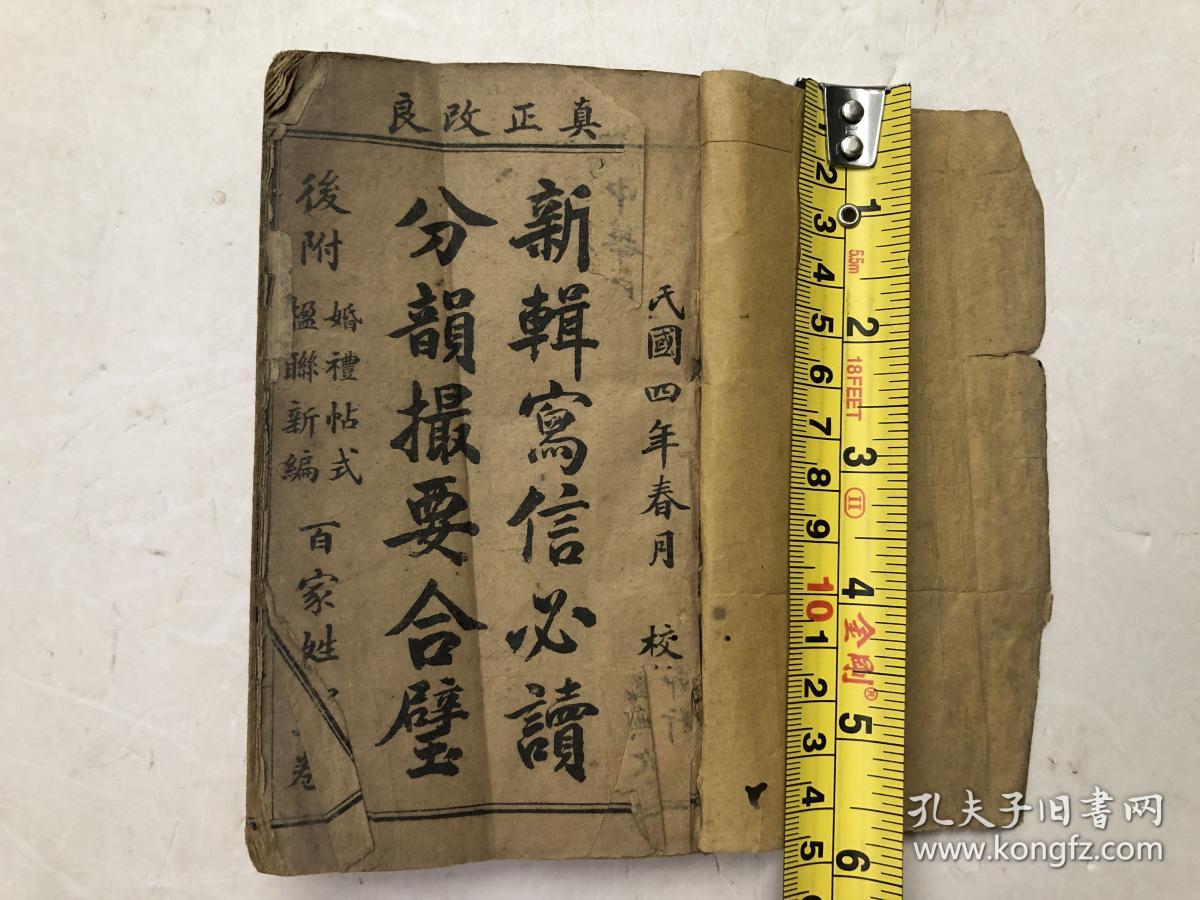 真正改良
民國四年春月 校
新輯寫信必讀
分韻撮要合璧
後附 婚禮帖式
楹聯新編
百家姓
卷
1 2 3 4 5 6 7 8 9 10 1 2 3 4 5
1 2 3 4 5 6
5.5m
18FEET
II
金剛®
孔夫子旧书网
www.kongfz.com